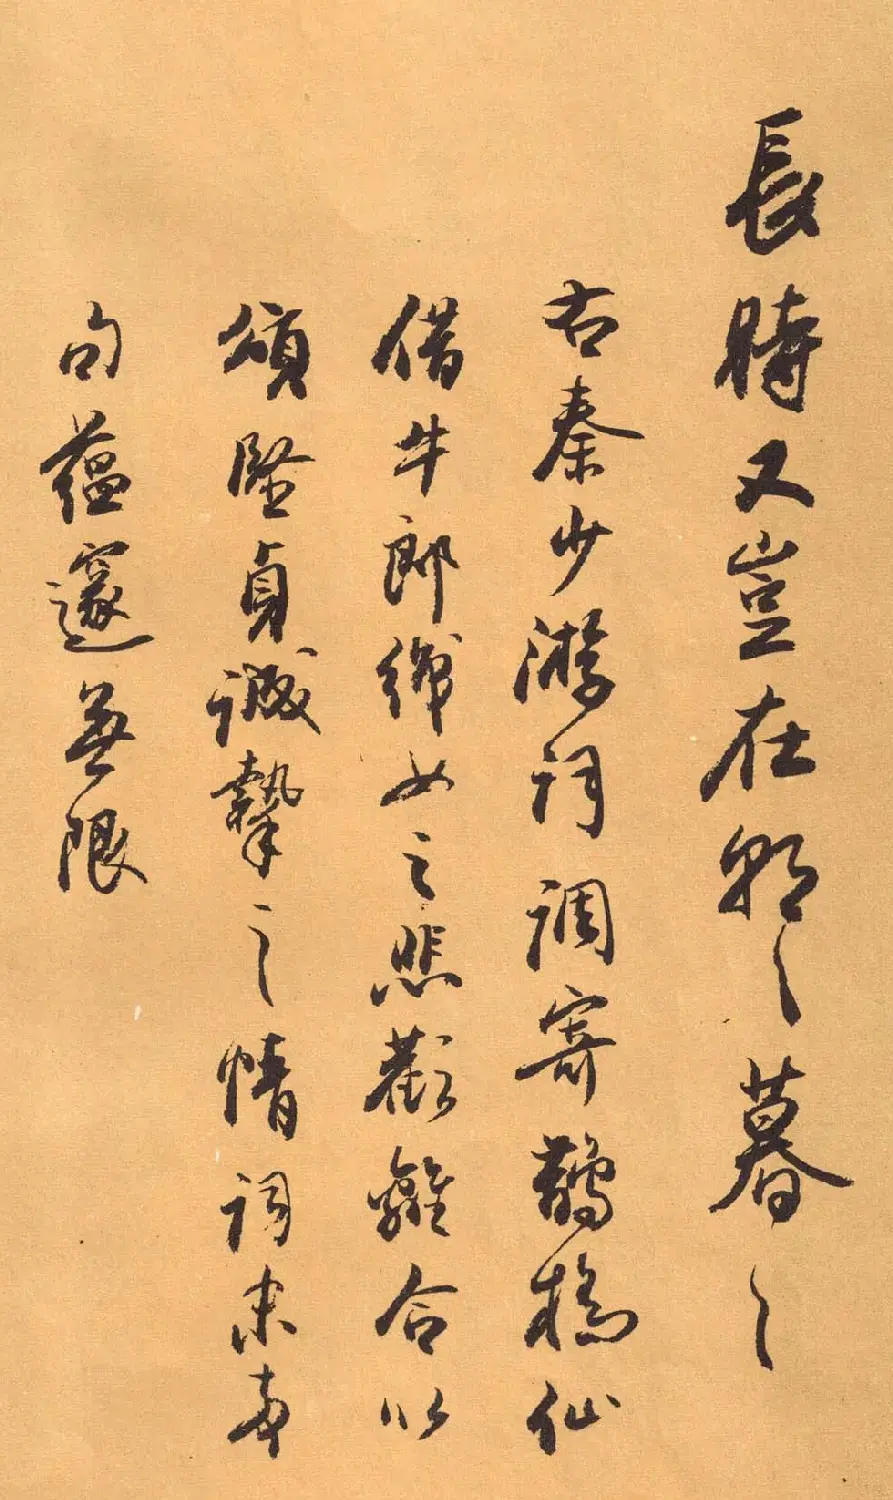 長時又豈在朝〻暮〻
右秦少游詞調寄鵲橋仙
借牛郎織女之悲歡離合以
頌堅貞誠摯之情詞末兩
句蘊邃無限